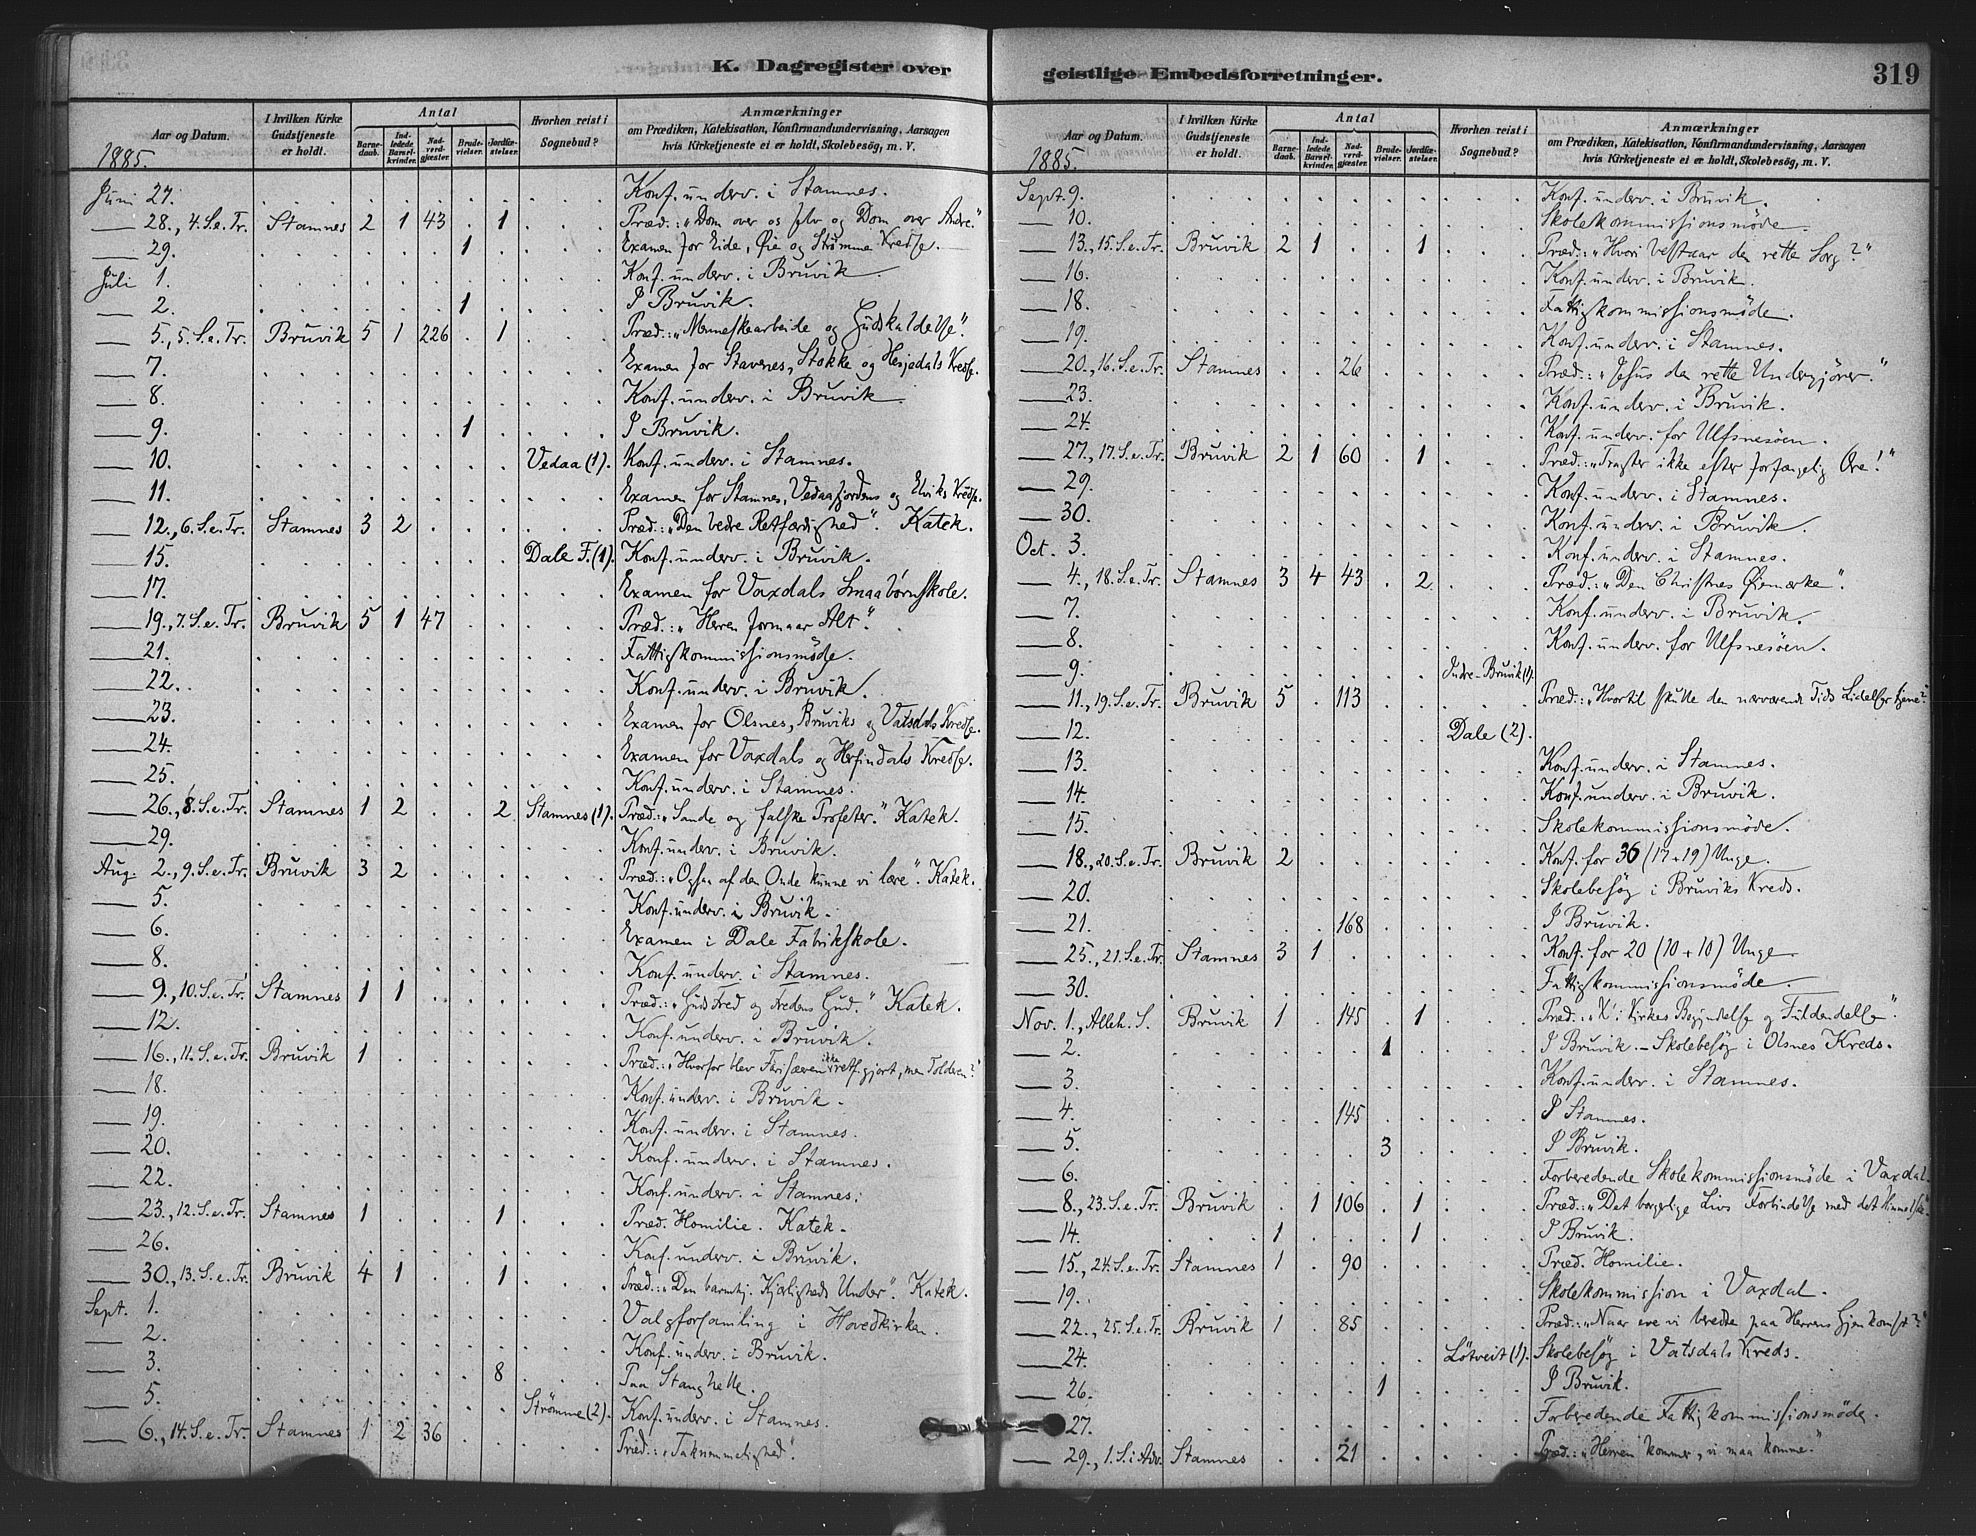 K. Dagregister over
Aar og Datum.
I hvilken Kirke Gudstjeneste er holdt.
Antal
Barnedaab.
Indledede Barselkvinder.
Nadverdgjæster.
Brudevielser.
Jordfæstelser.
Hvorhen reist i Sognebud?
Anmærkninger
om Prædiken, Katekisation, Konfirmandundervisning, Aarsagen
hvis Kirketjeneste ei er holdt, Skolebesøg, m. V.
1885.
Juni 27. Konf. underv. i Stamnes.
28., 4. S. e. Tr. Stamnes 2 1 43 . 1 Præd.: „Dom over os selv og Dom over Andre."
29. 1 Examen for Eide, Øie og Strømme Kredse.
Juli 1. Konf. underv. i Bruvik.
2. 1 I Bruvik.
5., 5. S. e. Tr. Bruvik 5 1 226 . 1 Præd.: „Menneskearbeide og Gudskaldelse".
7. Examen for Stavenes, Stokke og Hesjedals Kredse.
8. Konf. underv. i Bruvik.
9. 1 I Bruvik.
10. Vedaa (1). Konf. underv. i Stamnes.
11. Examen for Stamnes, Vedaafjordens og Elviks Kredse.
12., 6. S. e. Tr. Stamnes 3 2 Præd.: „Den bedre Retfærdighed". Katek.
15. Dale F. (1). Konf. underv. i Bruvik.
17. Examen for Vaxdals Smaabørnskole.
19., 7. S. e. Tr. Bruvik 5 1 47 Præd.: „Herren formaar Alt".
21. Fattigkommissionsmøde.
22. Konf. underv. i Bruvik.
23. Examen for Olsnes, Bruviks og Vatsdals Kredse.
24. Examen for Vaxdals og Herfindals Kredse.
25. Konf. underv. i Stamnes.
26., 8. S. e. Tr. Stamnes 1 2 . . 2 Stamnes (1). Præd.: „Sande og falske Profeter." Katek.
29. Konf. underv. i Bruvik.
Aug. 2., 9. S. e. Tr. Bruvik 3 2 Præd.: „Ogsaa af den Onde kunne vi lære". Katek.
5. Konf. underv. i Bruvik.
6. Examen i Dale Fabrikskole.
8. Konf. underv. i Stamnes.
9., 10. S. e. Tr. Stamnes 1 1 Præd.: „Guds Fred og Fredens Gud." Katek.
12. Konf. underv. i Bruvik.
16., 11. S. e. Tr. Bruvik 1 Præd.: „Hvorfor blev Farisæeren ikke retf.gjort, men Tolderen?"
18. Konf. underv. i Bruvik.
19. Konf. underv. i Stamnes.
20. Konf. underv. i Stamnes.
22. Konf. underv. i Stamnes.
23., 12. S. e. Tr. Stamnes 1 . . . 1 Præd. Homilie. Katek.
26. Konf. underv. i Bruvik.
30., 13. S. e. Tr. Bruvik 4 1 . . 1 Præd.: „Den barmhj. Kjærligheds Under". Katek.
Sept. 1. Valgforsamling i Hovedkirken.
2. Konf. underv. i Bruvik.
3. 8 Paa Stanghelle.
5. Strømme (2). Konf. underv. i Stamnes.
6., 14. S. e. Tr. Stamnes 1 2 36 Præd.: „Taknemmelighed".
geistlige Embedsforretninger.
319
Aar og Datum.
I hvilken Kirke Gudstjeneste er holdt.
Antal
Barnedaab.
Indledede Barselkvinder.
Nadverdgjæster.
Brudevielser.
Jordfæstelser.
Hvorhen reist i Sognebud?
Anmærkninger
om Prædiken, Katekisation, Konfirmandundervisning, Aarsagen
hvis Kirketjeneste ei er holdt, Skolebesøg, m. V.
1885.
Sept. 9. Konf. underv. i Bruvik.
10. Skolekommissionsmøde.
13., 15. S. e. Tr. Bruvik 2 1 . . 1 Præd.: „Hvori bestaar den rette Sorg?"
16. Konf. underv. i Bruvik.
18. Fattigkommissionsmøde.
19. Konf. underv. i Stamnes.
20., 16. S. e. Tr. Stamnes . . 26 Præd.: „Jesus den rette Undergjører."
23. Konf. underv. i Bruvik.
24. Konf. underv. for Ulfsnesøen.
27., 17. S. e. Tr. Bruvik 2 1 60 . 1 Præd.: „Tragter ikke efter forfængelig Ære!"
29. Konf. underv. i Stamnes.
30. Konf. underv. i Bruvik.
Oct. 3. Konf. underv. i Stamnes.
4., 18. S. e. Tr. Stamnes 3 4 43 . 2 Præd.: „Den Christnes Øiemærke".
7. Konf. underv. i Bruvik.
8. Konf. underv. for Ulfsnesøen.
9. Indre-Bruvik (1).
11., 19. S. e. Tr. Bruvik 5 . 113 Præd.: „Hvortil skulle den nærværende Tids Lidelser tjene?"
12. Dale (2).
13. Konf. underv. i Stamnes.
14. Konf. underv. i Bruvik.
15. Skolekommissionsmøde.
18., 20. S. e. Tr. Bruvik 2 Konf. for 36 (17 + 19) Unge.
20. Skolebesøg i Bruviks Kreds.
21. 168 I Bruvik.
25., 21. S. e. Tr. Stamnes 3 1 Konf. for 20 (10 + 10) Unge
30. Fattigkommissionsmøde.
Nov. 1., Alleh. S. Bruvik 1 . 145 . 1 Præd.: „X i Kirkes Begyndelse og Fuldendelse".
2. 1 I Bruvik. – Skolebesøg i Olsnes Kreds.
3. Konf. underv. i Stamnes.
4. 145 I Stamnes.
5. 3 I Bruvik.
6. Forberedende Skolekommissionsmøde i Vaxdal.
8., 23. S. e. Tr. Bruvik . 1 106 . 1 Præd.: „Det borgerlige Livs Forbindelse med det Himmelske"
14. 1 . . . 1 I Bruvik.
15., 24. S. e. Tr. Stamnes 1 . 90 Præd. Homilie.
19. Skolekommission i Vaxdal.
22., 25. S. e. Tr. Bruvik 1 . 85 Præd.: „Naar ere vi beredte paa Herrens Gjenkomst?"
24. Løtveit (1). Skolebesøg i Vatsdals Kreds.
26. 1 I Bruvik.
27. Forberedende Fattigkommissionsmøde.
29., 1. S. i Adv. Stamnes . . 21 Præd.: „Herren kommer, vi maa komme."